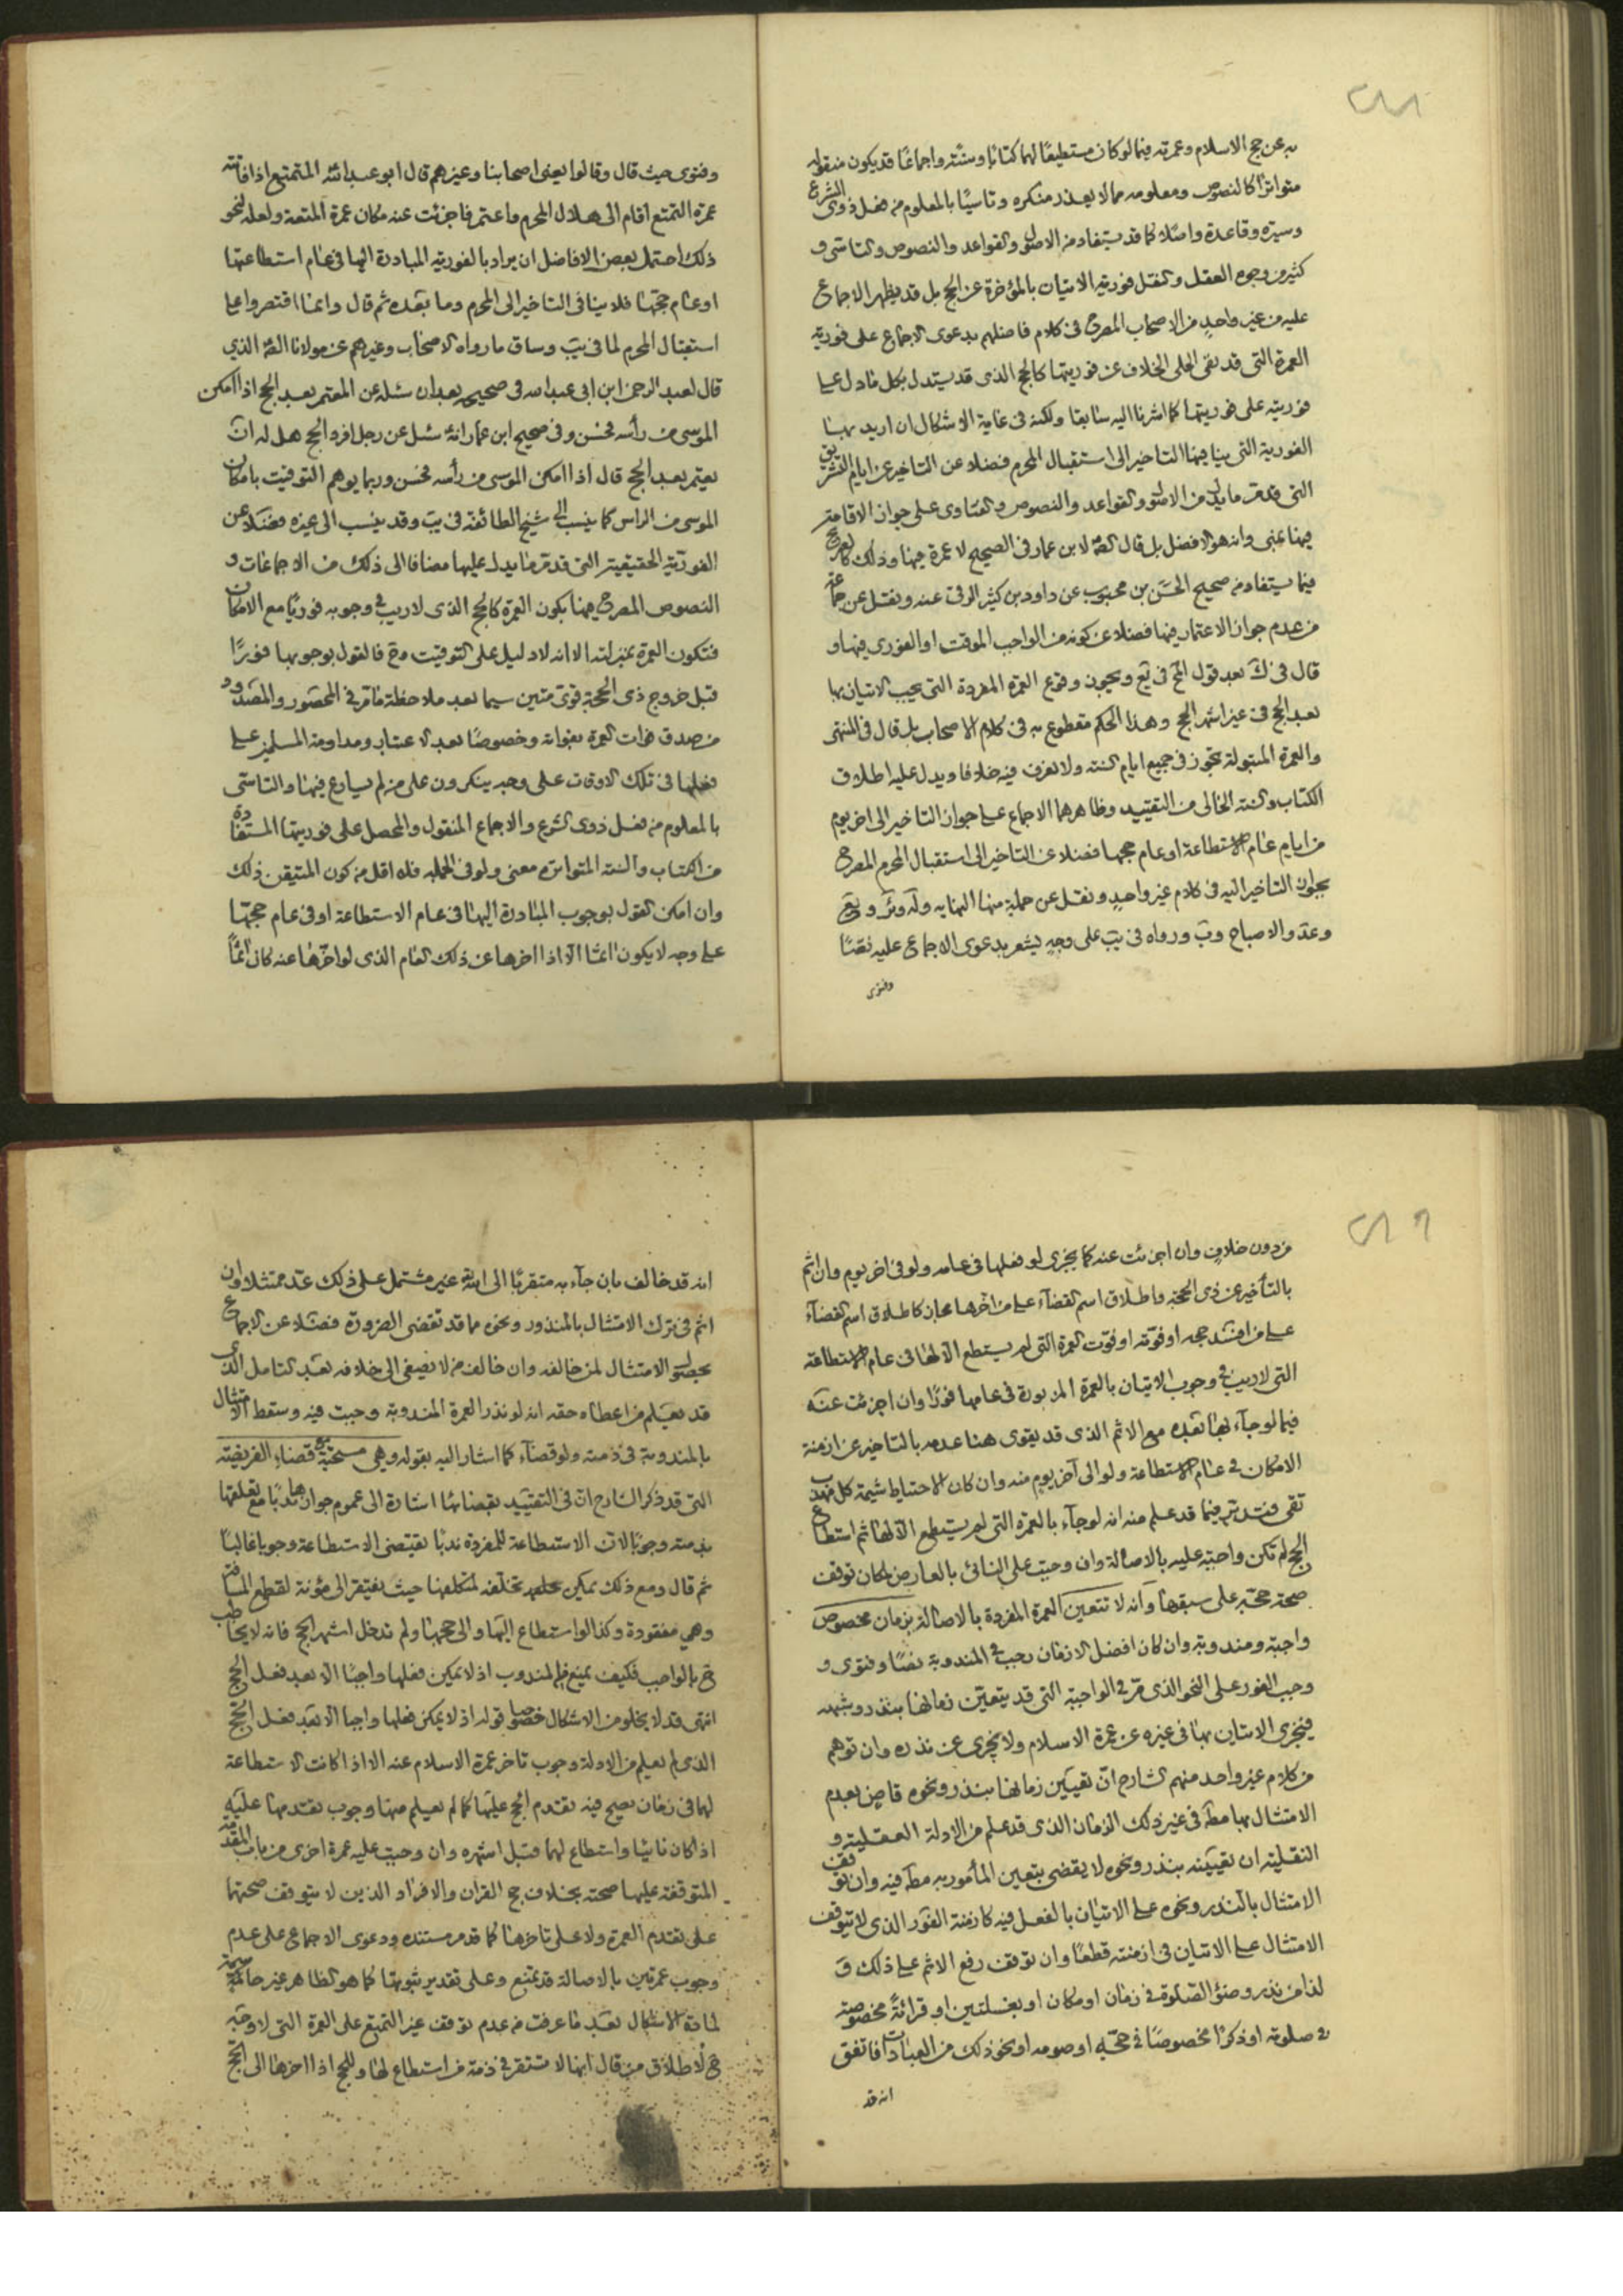 ٢٨٨
به عن حج الاسلام وعمرته فيما لو كان مستطيعًا لهما كتابًا وسنّة واجماعًا قد يكون منقوله
متواترًا كالنصوص ومعلومه مما لا يعذر منكره وتاسيًا بالمعلوم من فعل ذوى الشرع
وسيرة وقاعدة واصلا كما قد يستفاد من الاصل والقواعد والنصوص والتاسى و
كثير من وجوه العقل والنقل فورية الاتيان بالمؤخرة عن الحج بل قد يظهر الاجماع
عليه من غير واحدٍ من الاصحاب المصرح فى كلام فاضلهم بدعوى الاجماع على فورية
العمرة التى قد نفى الحلى الخلاف عن فوريتها كالحج الذى قد يستدل بكل ما دل على
فوريته على فوريتها كما اشرنا اليه سابقا ولكنه فى غاية الاشكال ان اريد بها
الفورية التى ينافيها التاخير الى استقبال المحرم فضلا عن التاخير عن ايام التشريق
التى قد مر ما يدل من الاصل والقواعد والنصوص والفتاوى على جواز الاقامة
فيها بمنى وانه هو الافضل بل قال لابن عمار فى الصحيح لا عمرة فيها وذلك كالصريح
فيما يستفاد من صحيح الحسن بن محبوب عن داود بن كثير الرقى عنه ونقل عن جماعة
من عدم جواز الاعتمار فيها فضلا عن كونه من الواجب الموقت او الفورى فيها و
قال فى ك بعد قول المص فى يع ويجوز وقوع العمرة المفردة التى يجب الاتيان بها
بعد الحج فى غير اشهر الحج وهذا الحكم مقطوع به فى كلام الاصحاب بل قال فى المنتهى
والعمرة المبتولة تجوز فى جميع ايام السنة ولا نعرف فيه خلافا ويدل عليه اطلاق
الكتاب والسنة الخالى من التقييد وظاهرهما الاجماع على جواز التاخير الى اخر يوم
من ايام عام الاستطاعة او عام حجها فضلا عن التاخير الى استقبال المحرم المصرح
بجواز التاخير اليه فى كلام غير واحدٍ ونقل عن جملة منها النهايه
وعد والاصباح ويب ورواه فى يب على وجهٍ يشعر بدعوى الاجماع عليه نصًا
وفتوى
وفتوى حيث قال وقالوا يعنى اصحابنا وغيرهم قال ابو عبد الله المتمتع اذا فاتته
عمرة التمتع اقام الى هلال المحرم واعتمر فاجزئت عنه مكان عمرة المتعة ولعله لنحو
ذلك احتمل بعض الافاضل ان يراد بالفورية المبادرة اليها فى عام استطاعتها
او عام حجّتها فلا ينافى التاخير الى المحرم وما بعده ثم قال وانما اقتصروا على
استقبال المحرم لما فى يب وساق ما رواه الاصحاب وغيرهم عن مولانا الصّ الذى
قال لعبد الرحمن ابن ابى عبد الله فى صحيحه بعد ان سئل عن المعتمر بعد الحج اذا امكن
الموسى من رأسه فحسن وفى صحيح ابن عمار انه سئل عن رجل افرد الحج هل له ان
يعتمر بعد الحج قال اذا امكن الموسى من رأسه فحسن وربما يوهم التوقيت بامكان
الموسى من الراس كما ينسب الى شيخ الطائفة فى يب وقد ينسب الى غيره فضلا عن
الفورية الحقيقية التى قد مر ما يدل عليها مضافا الى ذلك من الاجماعات و
النصوص المصرح فيها بكون العمرة كالحج الذى لا ريب فى وجوبه فوريًا مع الامكان
فتكون العمرة بمنزلته الا انه لا دليل على التوقيت ومع فالقول بوجوبها فورًا
قبل خروج ذى الحجة قوى متين سيما بعد ملاحظة ما مر فى المحصور والمصدود
من صدق فوات العمرة بفواته وخصوصًا بعد الاعتبار ومداومة المسلمين على
فعلها فى تلك الاوقات على وجه ينكرون على من لم يسارع فيها والتاسّى
بالمعلوم من فعل ذوى الشرع والاجماع المنقول والمحصل على فوريتها المستفادة
من الكتاب والسنة المتواتره معنى ولو فى الجمله فلا اقل من كون المتيقن ذلك
وان امكن القول بوجوب المبادرة اليها فى عام الاستطاعة او فى عام حجتها
على وجه لا يكون اثمًا الا اذا اخرها عن ذلك العام الذى لو اخّرها عنه كان اثمًا
٢٨٩
من دون خلافٍ وان اجزئت عنه كما يجزى لو فعلها فى عامه ولو فى اخر يوم وان اثم
بالتأخير عن ذى الحجة واطلاق اسم القضآء على من اخّرها مجاز كاطلاق اسم القضآء
على من افسد حجه او فوّته او فوّت العمرة التى لم يستطع الا لها فى عام الاستطاعة
التى لا ريب فى وجوب الاتيان بالعمرة المزبورة فى عامها فورًا وان اجزئت عنه
فيما لو جآء بها بعده مع الاثم الذى قد يقوى هنا عدمه بالتاخير عن ازمنة
الامكان فى عام الاستطاعة ولو الى آخر يوم منه وان كان الاحتياط شيمة كل مهذب
تقى فتدبر فيما قد علم منه انه لو جآء بالعمرة التى لم يستطع الا لها ثم استطاع
الحج لم تكن واجبة عليه بالاصالة وان وجبت على النائى بالعارض لمكان توقف
صحة حجّه على سبقها وانه لا تتعين العمرة المفردة بالاصالة بزمان مخصوص
واجبة ومندوبة وان كان افضل الازمان رجب فى المندوبة نصًا وفتوى و
وجب الفور على النحو الذى مرّ فى الواجبة التى قد يتعيّن زمانها بنذر وشبهه
فيجزى الاتيان بها فى غيره عن عمرة الاسلام ولا يجزى عن نذره وان توهم
من كلام غير واحد منهم الشارح انّ تعيين زمانها بنذر ونحوه قاضٍ بعدم
الامتثال بها مطّه فى غير ذلك الزمان الذى قد علم من الادلة العقلية و
النقلية ان تعيينه بنذر ونحوه لا يقضى بتعين المأمور به مطّه فيه وان توقف
الامتثال بالنذر ونحوه على الاتيان بالفعل فيه كازمنة الفور الذى لا يتوقف
الامتثال على الاتيان فى ازمنته قطعًا وان توقف رفع الاثم على ذلك و
لذا من نذر وضوء الصلوة فى زمان او مكان او بغسلتين او قرائةً مخصوصة
فى صلوته او ذكرًا مخصوصًا فى حجّه او صومه او نحو ذلك من العبادات فاتفق
انه قد
انه قد خالف بان جآء به متقربًا الى الله غير مشتمل على ذلك عدّ ممتثلا وان
اثم فى ترك الامتثال بالمنذور ونحوه مما قد تقضى الضرورة فضلا عن الاجماع
بحصول الامتثال لمن خالفه وان خالف من لا يصغى الى خلافه بعد التامل الذى
قد يعلم من اعطاه حقه انه لو نذر العمرة المندوبة وجبت فيه وسقط الامتثال
بالمندوبة فى ذمته ولو قضآء كما اشار اليه بقوله وهى مستحبّة مع قضاء الفريضة
التى قد ذكر الشارح ان فى التقييد بقضائها اشارة الى عموم جوازها ندبًا مع تعلقها
بذمته وجوبًا لان الاستطاعة للمفردة ندبًا تقتضى الاستطاعة وجوبا غالبًا
ثم قال ومع ذلك يمكن تخلفه لمتكلفها حيث يفتقر الى مؤنة لقطع المسافة
وهى مفقودة وكذا لو استطاع اليها والى حجها ولم تدخل اشهر الحج فانه لا يخاطب
ح بالواجب فكيف يمنع من المندوب اذ لا يمكن فعلها واجبًا الا بعد فعل الحج
انتهى قد لا يخلو من الاشكال خصوصا قوله اذ لا يمكن فعلها واجبا الا بعد فعل الحج
الذى لم يعلم من الادلة وجوب تاخر عمرة الاسلام عنه الا اذا كانت الاستطاعة
لهما فى زمان يصح فيه تقدم الحج عليها كما لم يعلم منها وجوب تقدمها عليه
اذا كان نائيا واستطاع لهما قبل اشهره وان وجبت عليه عمرة اخرى من باب المقدمة
المتوقفة عليها صحته بخلاف حج القران والافراد الذين لا يتوقف صحتهما
على تقدم العمرة ولا على تاخرها كما قد مر مستنده ودعوى الاجماع على عدم
وجوب عمرتين بالاصالة قد يمنع وعلى تقدير ثبوتها كما هو الظاهر غير حاسمة
لمادة الاشكال بعد ما عرفت من عدم توقف غير التمتع على العمرة التى لا وجه
ح لاطلاق من قال انها لا تستقر فى ذمة من استطاع لها وللحج اذا اخرها الى الحج